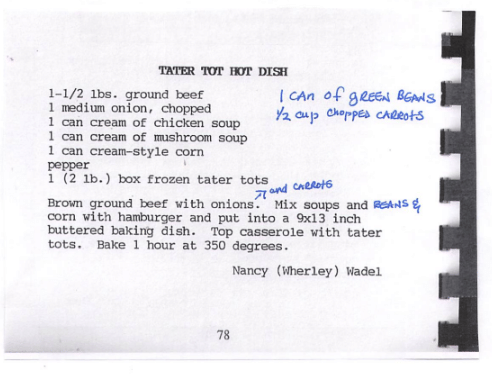 TATER TOT HOT DISH
1-1/2 lbs. ground beef
1 CAN of GREEN BEANS
1 medium onion, chopped
1/2 cup CHOPPED CARROTS
1 can cream of chicken soup
1 can cream of mushroom soup
1 can cream-style corn
pepper
1 (2 lb.) box frozen tater tots
and CARROTS
Brown ground beef with onions. Mix soups and BEANS &
corn with hamburger and put into a 9x13 inch
buttered baking dish. Top casserole with tater
tots. Bake 1 hour at 350 degrees.
Nancy (Wherley) Wadel
78